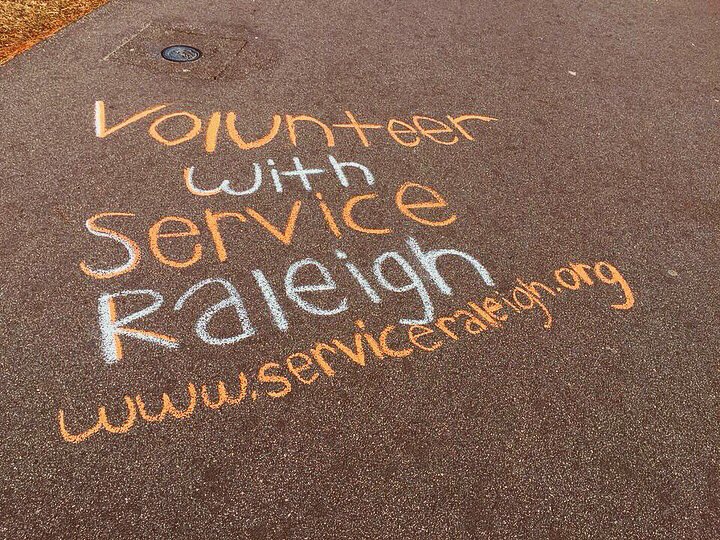 Volunteer
with
Service
Raleigh
www.serviceraleigh.org